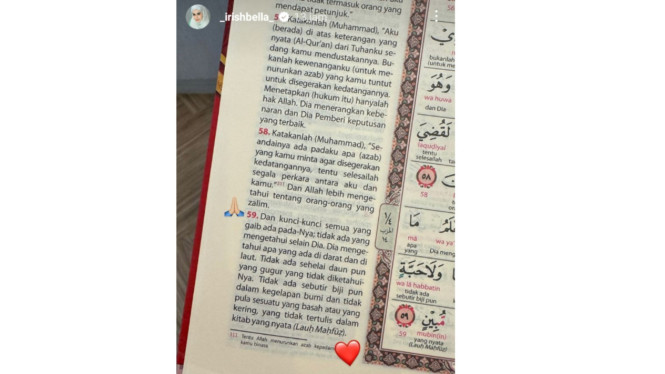 _irishbella_
nya tidak termasuk orang yang
mendapat petunjuk."
Katakanlah (Muhammad), "Aku
(berada) di atas keterangan yang
nyata (Al-Qur'an) dari Tuhanku se-
dang kamu mendustakannya. Bu-
kanlah kewenanganku (untuk me-
nurunkan azab) yang kamu tuntut
untuk disegerakan kedatangannya.
Menetapkan (hukum itu) hanyalah
hak Allah. Dia menerangkan kebe-
naran dan Dia Pemberi keputusan
yang terbaik.
58. Katakanlah (Muhammad), "Se-
andainya ada padaku apa (azab)
yang kamu minta agar disegerakan
kedatangannya, tentu selesailah
segala perkara antara aku dan
kamu." Dan Allah lebih menge-
tahui tentang orang-orang yang
zalim.
59. Dan kunci-kunci semua yang
gaib ada pada-Nya; tidak ada yang
mengetahui selain Dia. Dia menge-
tahui apa yang ada di darat dan di
laut. Tidak ada sehelai daun pun
yang gugur yang tidak diketahui-
Nya. Tidak ada sebutir biji pun
dalam kegelapan bumi dan tidak
pula sesuatu yang basah atau yang
kering, yang tidak tertulis dalam
kitab yang nyata (Lauḥ Maḥfūẓ).
Tentu Allah menurunkan azab
kamu binasa
وَهُوَ
wa huwa
dan Dia
لَقُضِيَ
laquḍiyal
tentu
selesailah
٥٨
58
مَا
mā
apa
yang
وَلَاحَبَّةٍ
wa lā ḥabbatin
tidak ada
sebutir biji pun
مُّبِيْنٍ
٥٩
mubīn(in)
59
yang nyata
(Lauḥ Maḥfūẓ)